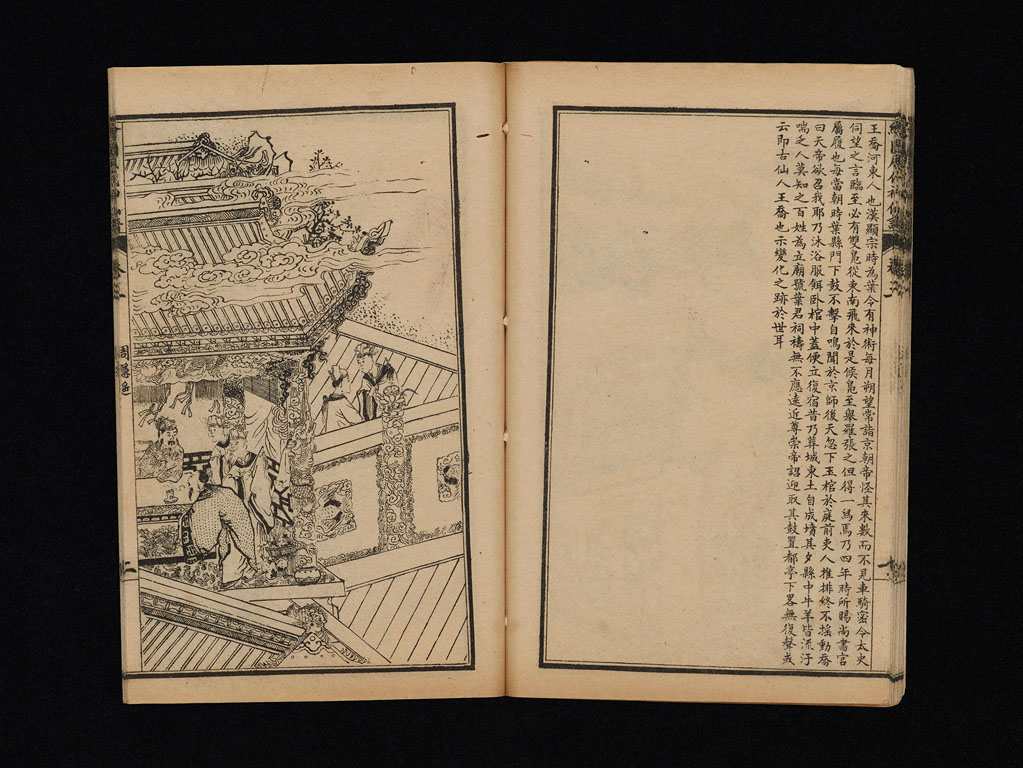 王喬河東人也漢顯宗時為葉令有神術每月朔望常詣京朝帝怪其來數而不見車騎密令太史
伺望之言臨至必有雙鳧從東南飛來於是候鳧至舉羅張之但得一舄焉乃四年時所賜尚書官
屬履也每當朝時葉縣門下鼓不擊自鳴聞於京師後天忽下玉棺於庭前吏人推排終不搖動喬
曰天帝欲召我耶乃沐浴服餌臥棺中蓋便立復宿昔乃葬城東土自成墳其夕縣中牛羊皆流汗
喘乏人莫知之百姓為立廟號葉君祠禱無不應遠近尊崇帝詔迎取其鼓置都亭下畧無復聲或
云即古仙人王喬也示變化之跡於世耳